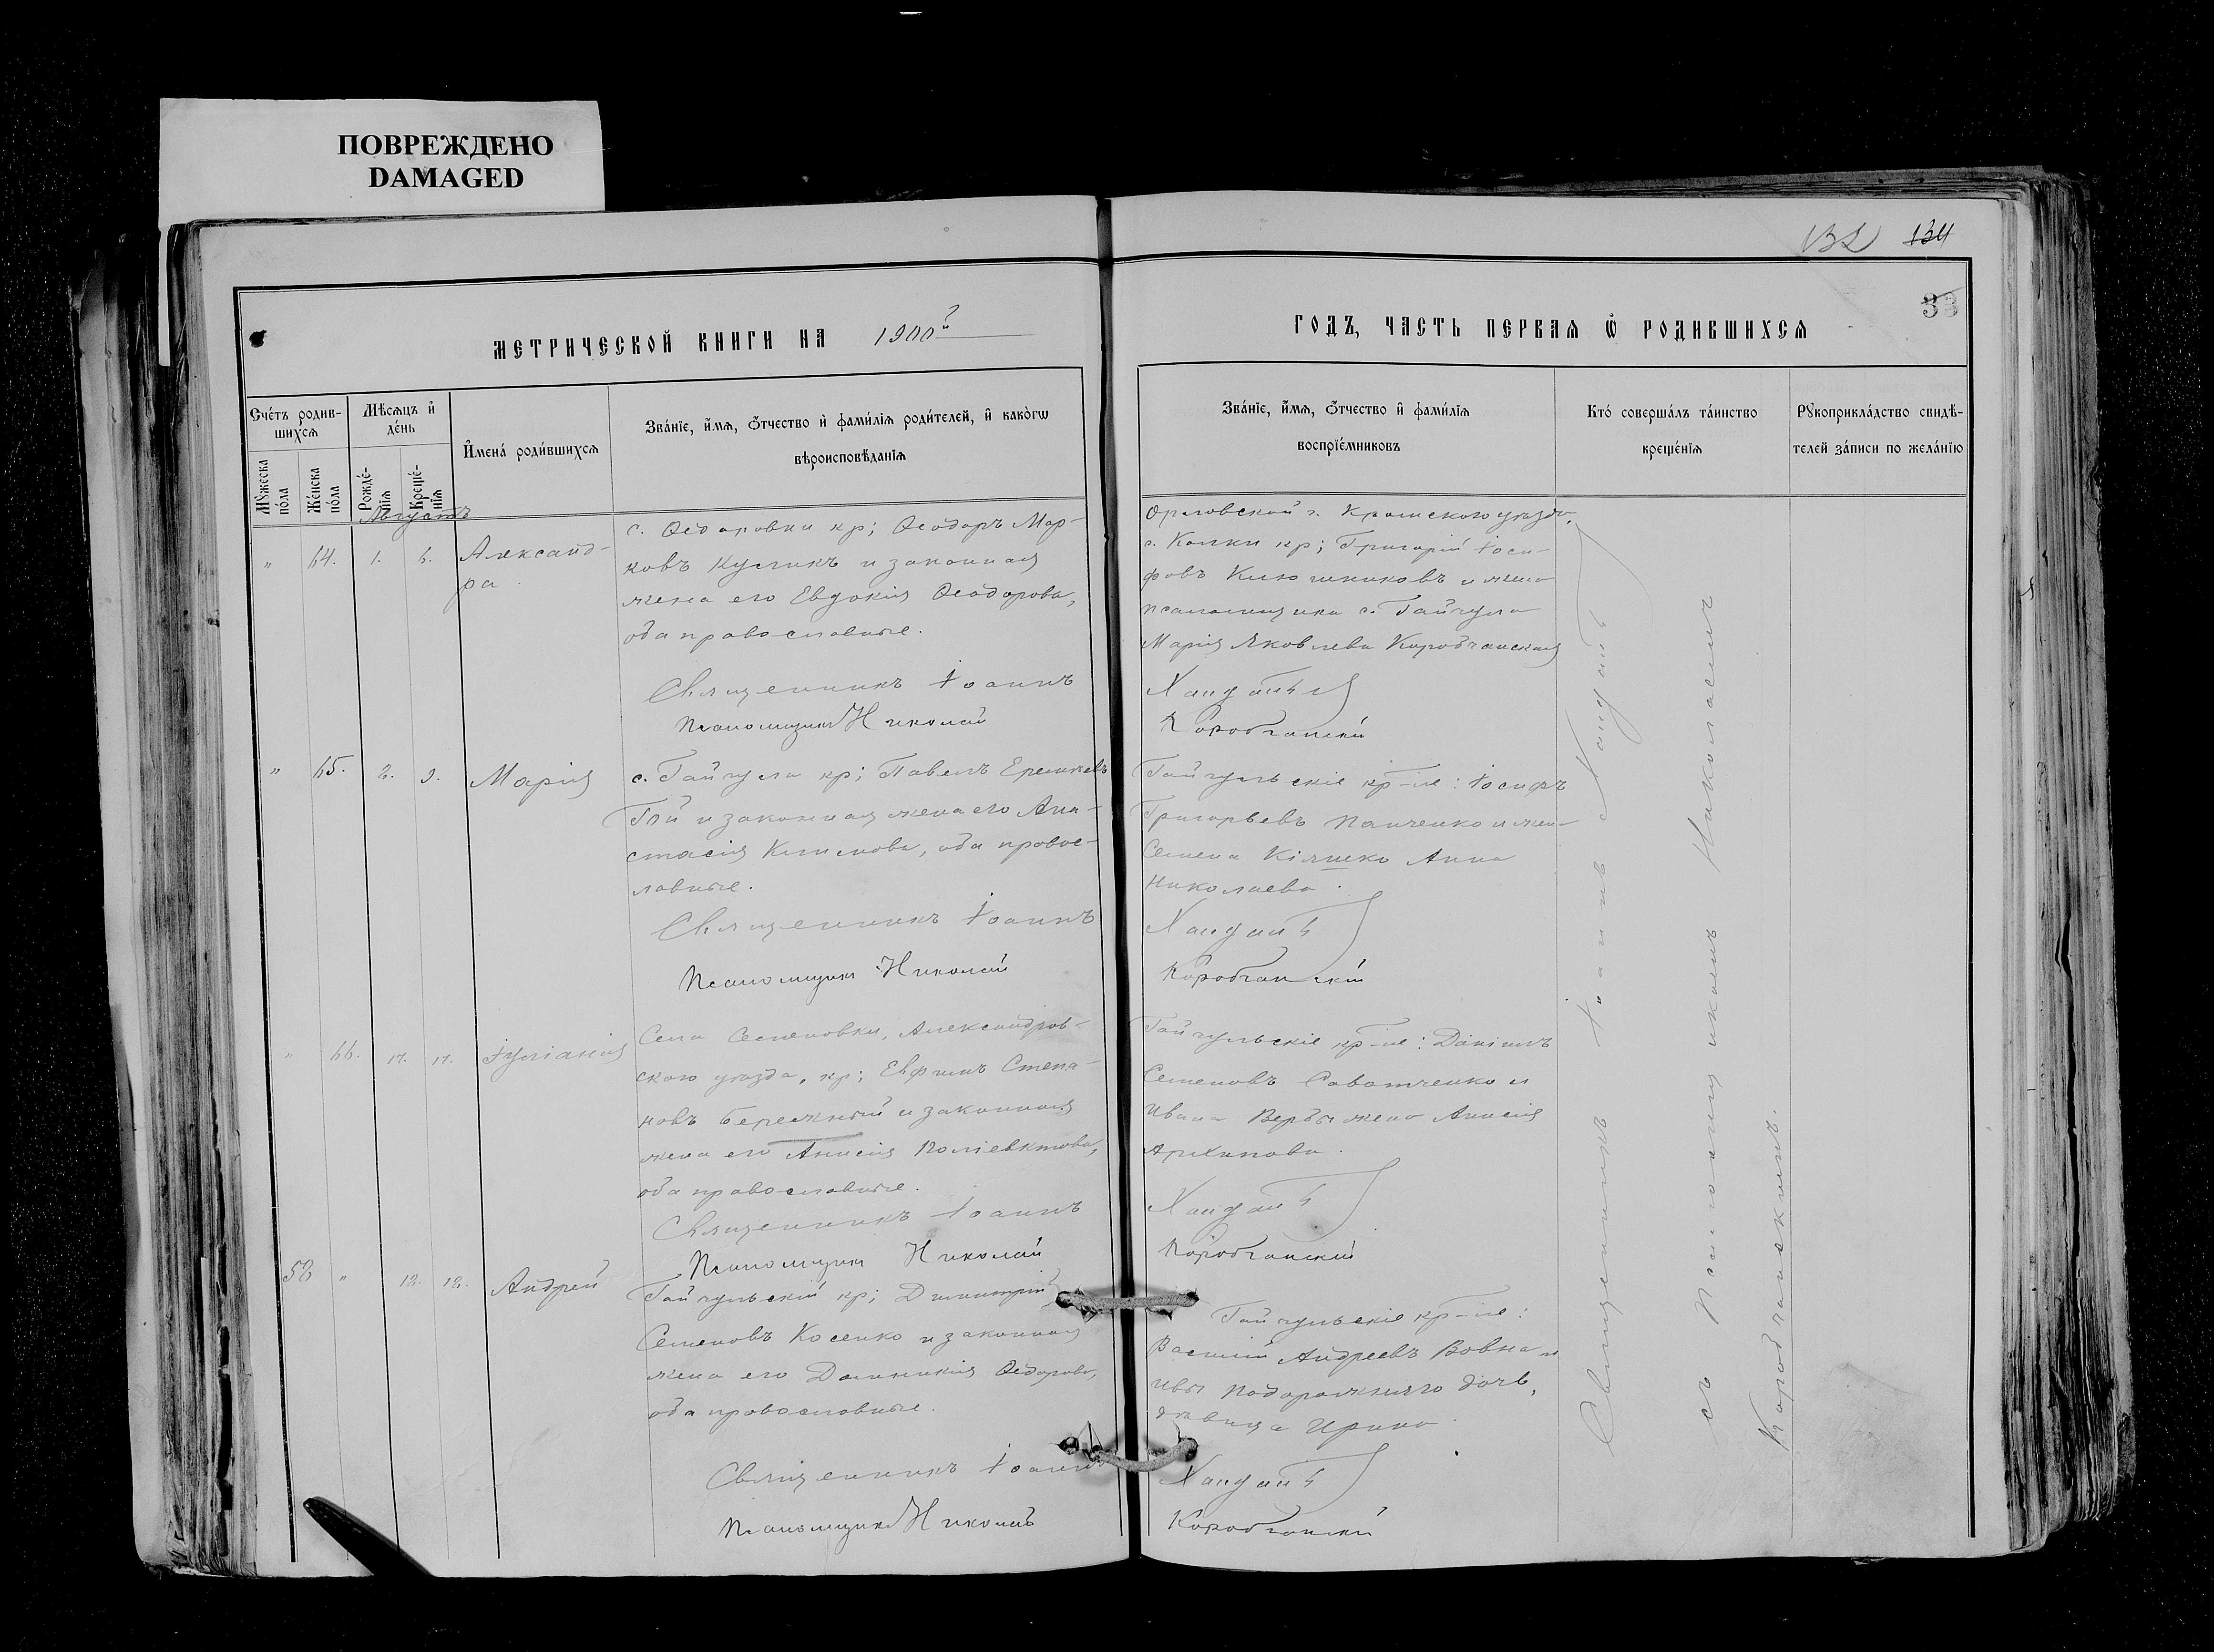 ПОВРЕЖДЕНО
DAMAGED
132 134
33
МЕТРИЧЕСКОЙ КНИГИ НА 1900й
ГОДЪ, ЧАСТЬ ПЕРВАЯ Ѡ РОДИВШИХСЯ
Счётъ родив-
шихся
Мужеска
пола
Женска
пола
Мѣсяцъ и
день
Рожде-
нія
Креще-
нія
Имена родившихся
Званіе, имя, отчество и фамилія родителей, и какогѡ
вѣроисповѣданія
Званіе, имя, отчество и фамилія
воспріемниковъ
Кто совершалъ таинство
крещенія
Рукоприкладство свидѣ-
телей записи по желанію
Августъ
" 64. 1. 6. Александ-
ра
с. Ѳедоровки кр; Ѳеодоръ Мар-
ковъ Куликъ и законная
жена его Евдокія Ѳеодорова,
оба православные.
Священникъ Іоаннъ
Псаломщикъ Николай
Орловской г. Кромскаго уѣзда,
с. Колки кр; Григорій Іоси-
фовъ Ключниковъ и жена
псаломщика с. Гайчула
Марія Яковлева Коробчанская
Хандатъ
Коробчанскій
" 65. 2. 9. Марія
с. Гайчула кр; Павелъ
Гой и законная жена его Ана-
стасія Климова, оба правос-
лавные.
Священникъ Іоаннъ
Псаломщикъ Николай
Гайчульскіе кр-не: Іосифъ
Григорьевъ Панченко и жен-
Семена Кіяшко Анна
Николаева.
Хандатъ
Коробчанскій
" 66. 17. 17. Іуліанія
Села Семеновки, Александров-
скаго уѣзда, кр; Евфимъ Степа-
новъ Бережный и законная
жена его Анисія Поліевктова,
оба православные.
Священникъ Іоаннъ
Псаломщикъ Николай
Гайчульскіе кр-не: Даніилъ
Семеновъ Саватченко и
Ивана Вербы жена Анисія
Архипова.
Хандатъ
Коробчанскій
58 " 18. 18. Андрей
Гайчульскій кр; Димитрій
Семеновъ Косенко и законная
жена его Доминикія Ѳедорова,
оба православные.
Священникъ Іоаннъ
Псаломщикъ Николай
Гайчульскіе кр-не:
Василій Андреевъ Вовна и
Ивы Подорожняго дочь,
дѣвица Ирина
Хандатъ
Коробчанскій
Священникъ Іоаннъ Хандатъ
съ Псаломщикомъ Николаемъ
Коробчанскимъ.